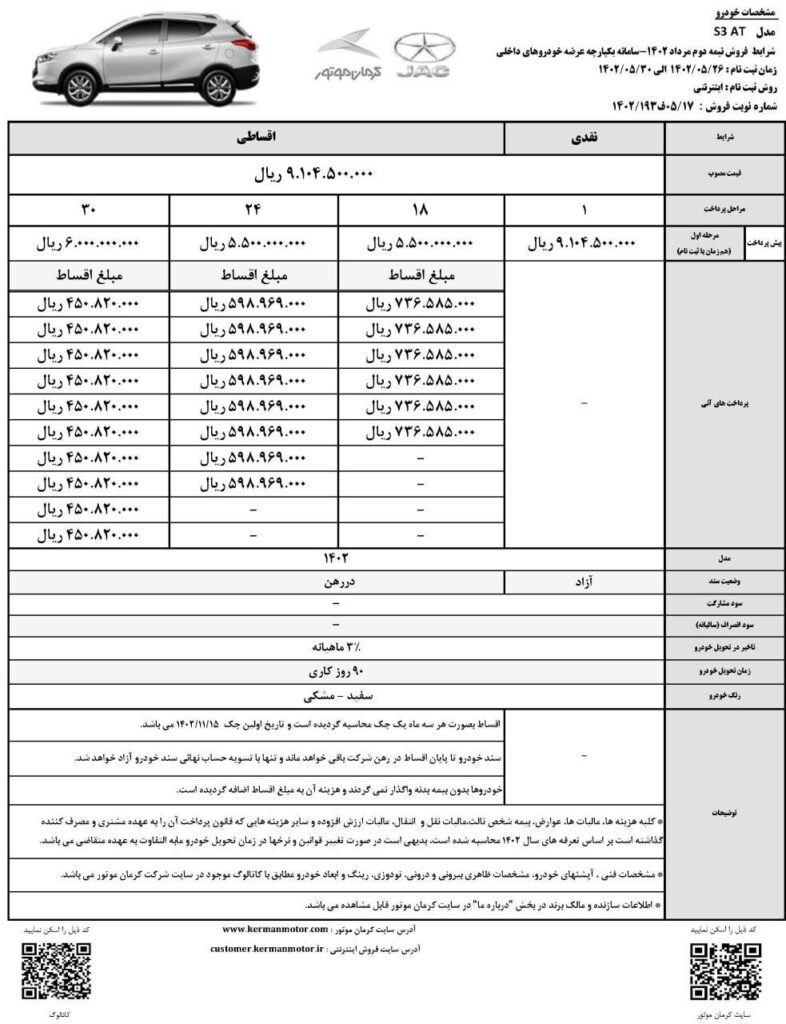 مشخصات خودرو
مدل S3 AT
شرایط فروش نیمه دوم مرداد ۱۴۰۲-سامانه یکپارچه عرضه خودروهای داخلی
زمان ثبت نام : ۱۴۰۲/۰۵/۲۶ الی ۱۴۰۲/۰۵/۳۰
روش ثبت نام : اینترنتی
شماره نوبت فروش : ۰۵/۱۷ف۱۴۰۲/۱۹۳
JAC
کرمان موتور
شرایط نقدی اقساطی
قیمت مصوب ۹.۱۰۴.۵۰۰.۰۰۰ ریال
مراحل پرداخت ۱ ۱۸ ۲۴ ۳۰
پیش پرداخت مرحله اول (همزمان با ثبت نام) ۹.۱۰۴.۵۰۰.۰۰۰ ریال ۵.۵۰۰.۰۰۰.۰۰۰ ریال ۵.۵۰۰.۰۰۰.۰۰۰ ریال ۶.۰۰۰.۰۰۰.۰۰۰ ریال
پرداخت های آتی – مبلغ اقساط مبلغ اقساط مبلغ اقساط
۷۳۶.۵۸۵.۰۰۰ ریال ۵۹۸.۹۶۹.۰۰۰ ریال ۴۵۰.۸۲۰.۰۰۰ ریال
۷۳۶.۵۸۵.۰۰۰ ریال ۵۹۸.۹۶۹.۰۰۰ ریال ۴۵۰.۸۲۰.۰۰۰ ریال
۷۳۶.۵۸۵.۰۰۰ ریال ۵۹۸.۹۶۹.۰۰۰ ریال ۴۵۰.۸۲۰.۰۰۰ ریال
۷۳۶.۵۸۵.۰۰۰ ریال ۵۹۸.۹۶۹.۰۰۰ ریال ۴۵۰.۸۲۰.۰۰۰ ریال
۷۳۶.۵۸۵.۰۰۰ ریال ۵۹۸.۹۶۹.۰۰۰ ریال ۴۵۰.۸۲۰.۰۰۰ ریال
۷۳۶.۵۸۵.۰۰۰ ریال ۵۹۸.۹۶۹.۰۰۰ ریال ۴۵۰.۸۲۰.۰۰۰ ریال
– ۵۹۸.۹۶۹.۰۰۰ ریال ۴۵۰.۸۲۰.۰۰۰ ریال
– ۵۹۸.۹۶۹.۰۰۰ ریال ۴۵۰.۸۲۰.۰۰۰ ریال
– – ۴۵۰.۸۲۰.۰۰۰ ریال
– – ۴۵۰.۸۲۰.۰۰۰ ریال
مدل ۱۴۰۲
وضعیت سند آزاد دررهن
سود مشارکت –
سود انصراف (سالیانه) –
تاخیر در تحویل خودرو ۳٪ ماهیانه
زمان تحویل خودرو ۹۰ روز کاری
رنگ خودرو سفید - مشکی
توضیحات – اقساط بصورت هر سه ماه یک چک محاسبه گردیده است و تاریخ اولین چک ۱۴۰۲/۱۱/۱۵ می باشد.
سند خودرو تا پایان اقساط در رهن شرکت باقی خواهد ماند و تنها با تسویه حساب نهائی سند خودرو آزاد خواهد شد.
خودروها بدون بیمه بدنه واگذار نمی گردند و هزینه آن به مبلغ اقساط اضافه گردیده است.
* کلیه هزینه ها، مالیات ها، عوارض، بیمه شخص ثالث،مالیات نقل و انتقال، مالیات ارزش افزوده و سایر هزینه هایی که قانون پرداخت آن را به عهده مشتری و مصرف کننده
گذاشته است بر اساس تعرفه های سال ۱۴۰۲ محاسبه شده است، بدیهی است در صورت تغییر قوانین و نرخها در زمان تحویل خودرو مابه التفاوت به عهده متقاضی می باشد.
* مشخصات فنی ، آپشنهای خودرو، مشخصات ظاهری بیرونی و درونی، تودوزی، رینگ و ابعاد خودرو مطابق با کاتالوگ موجود در سایت شرکت کرمان موتور می باشد.
* اطلاعات سازنده و مالک برند در بخش "درباره ما" در سایت کرمان موتور قابل مشاهده می باشد.
کد ذیل را اسکن نمایید
آدرس سایت کرمان موتور : www.kermanmotor.com
کد ذیل را اسکن نمایید
آدرس سایت فروش اینترنتی : customer.kermanmotor.ir
سایت کرمان موتور
کاتالوگ